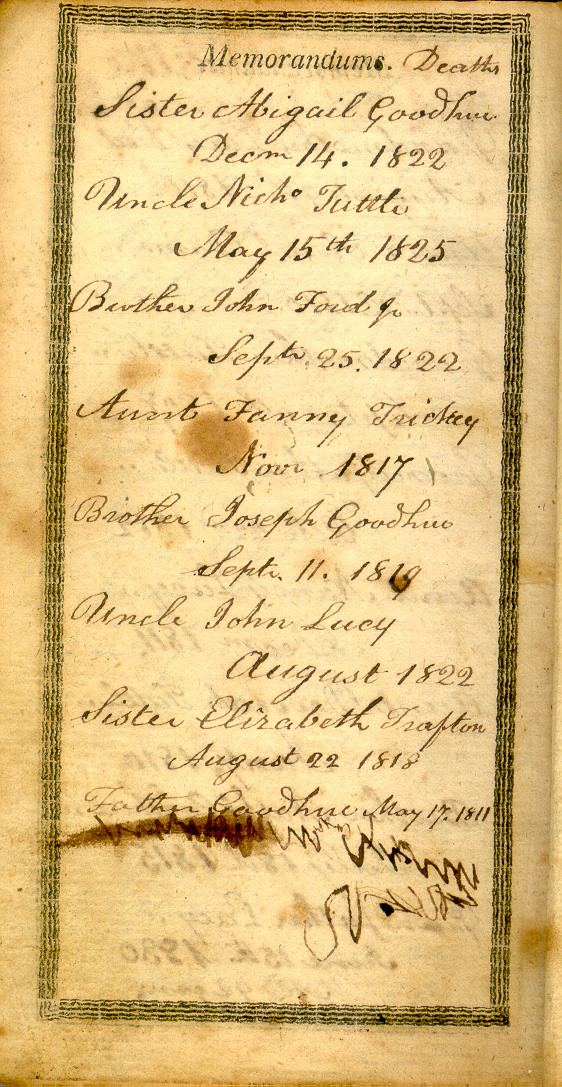 Memorandums. Deaths
Sister Abigail Goodhue
Decm 14. 1822
Uncle Nicho Tuttle
May 15th 1825
Brother John Ford Jr
Septr. 25. 1822
Aunt Fanny Trickey
Novr 1817
Brother Joseph Goodhue
Septr. 11. 1819
Uncle John Lucy
August 1822
Sister Elizabeth Trafton
August 22 1818
Father Goodhue May 17. 1811